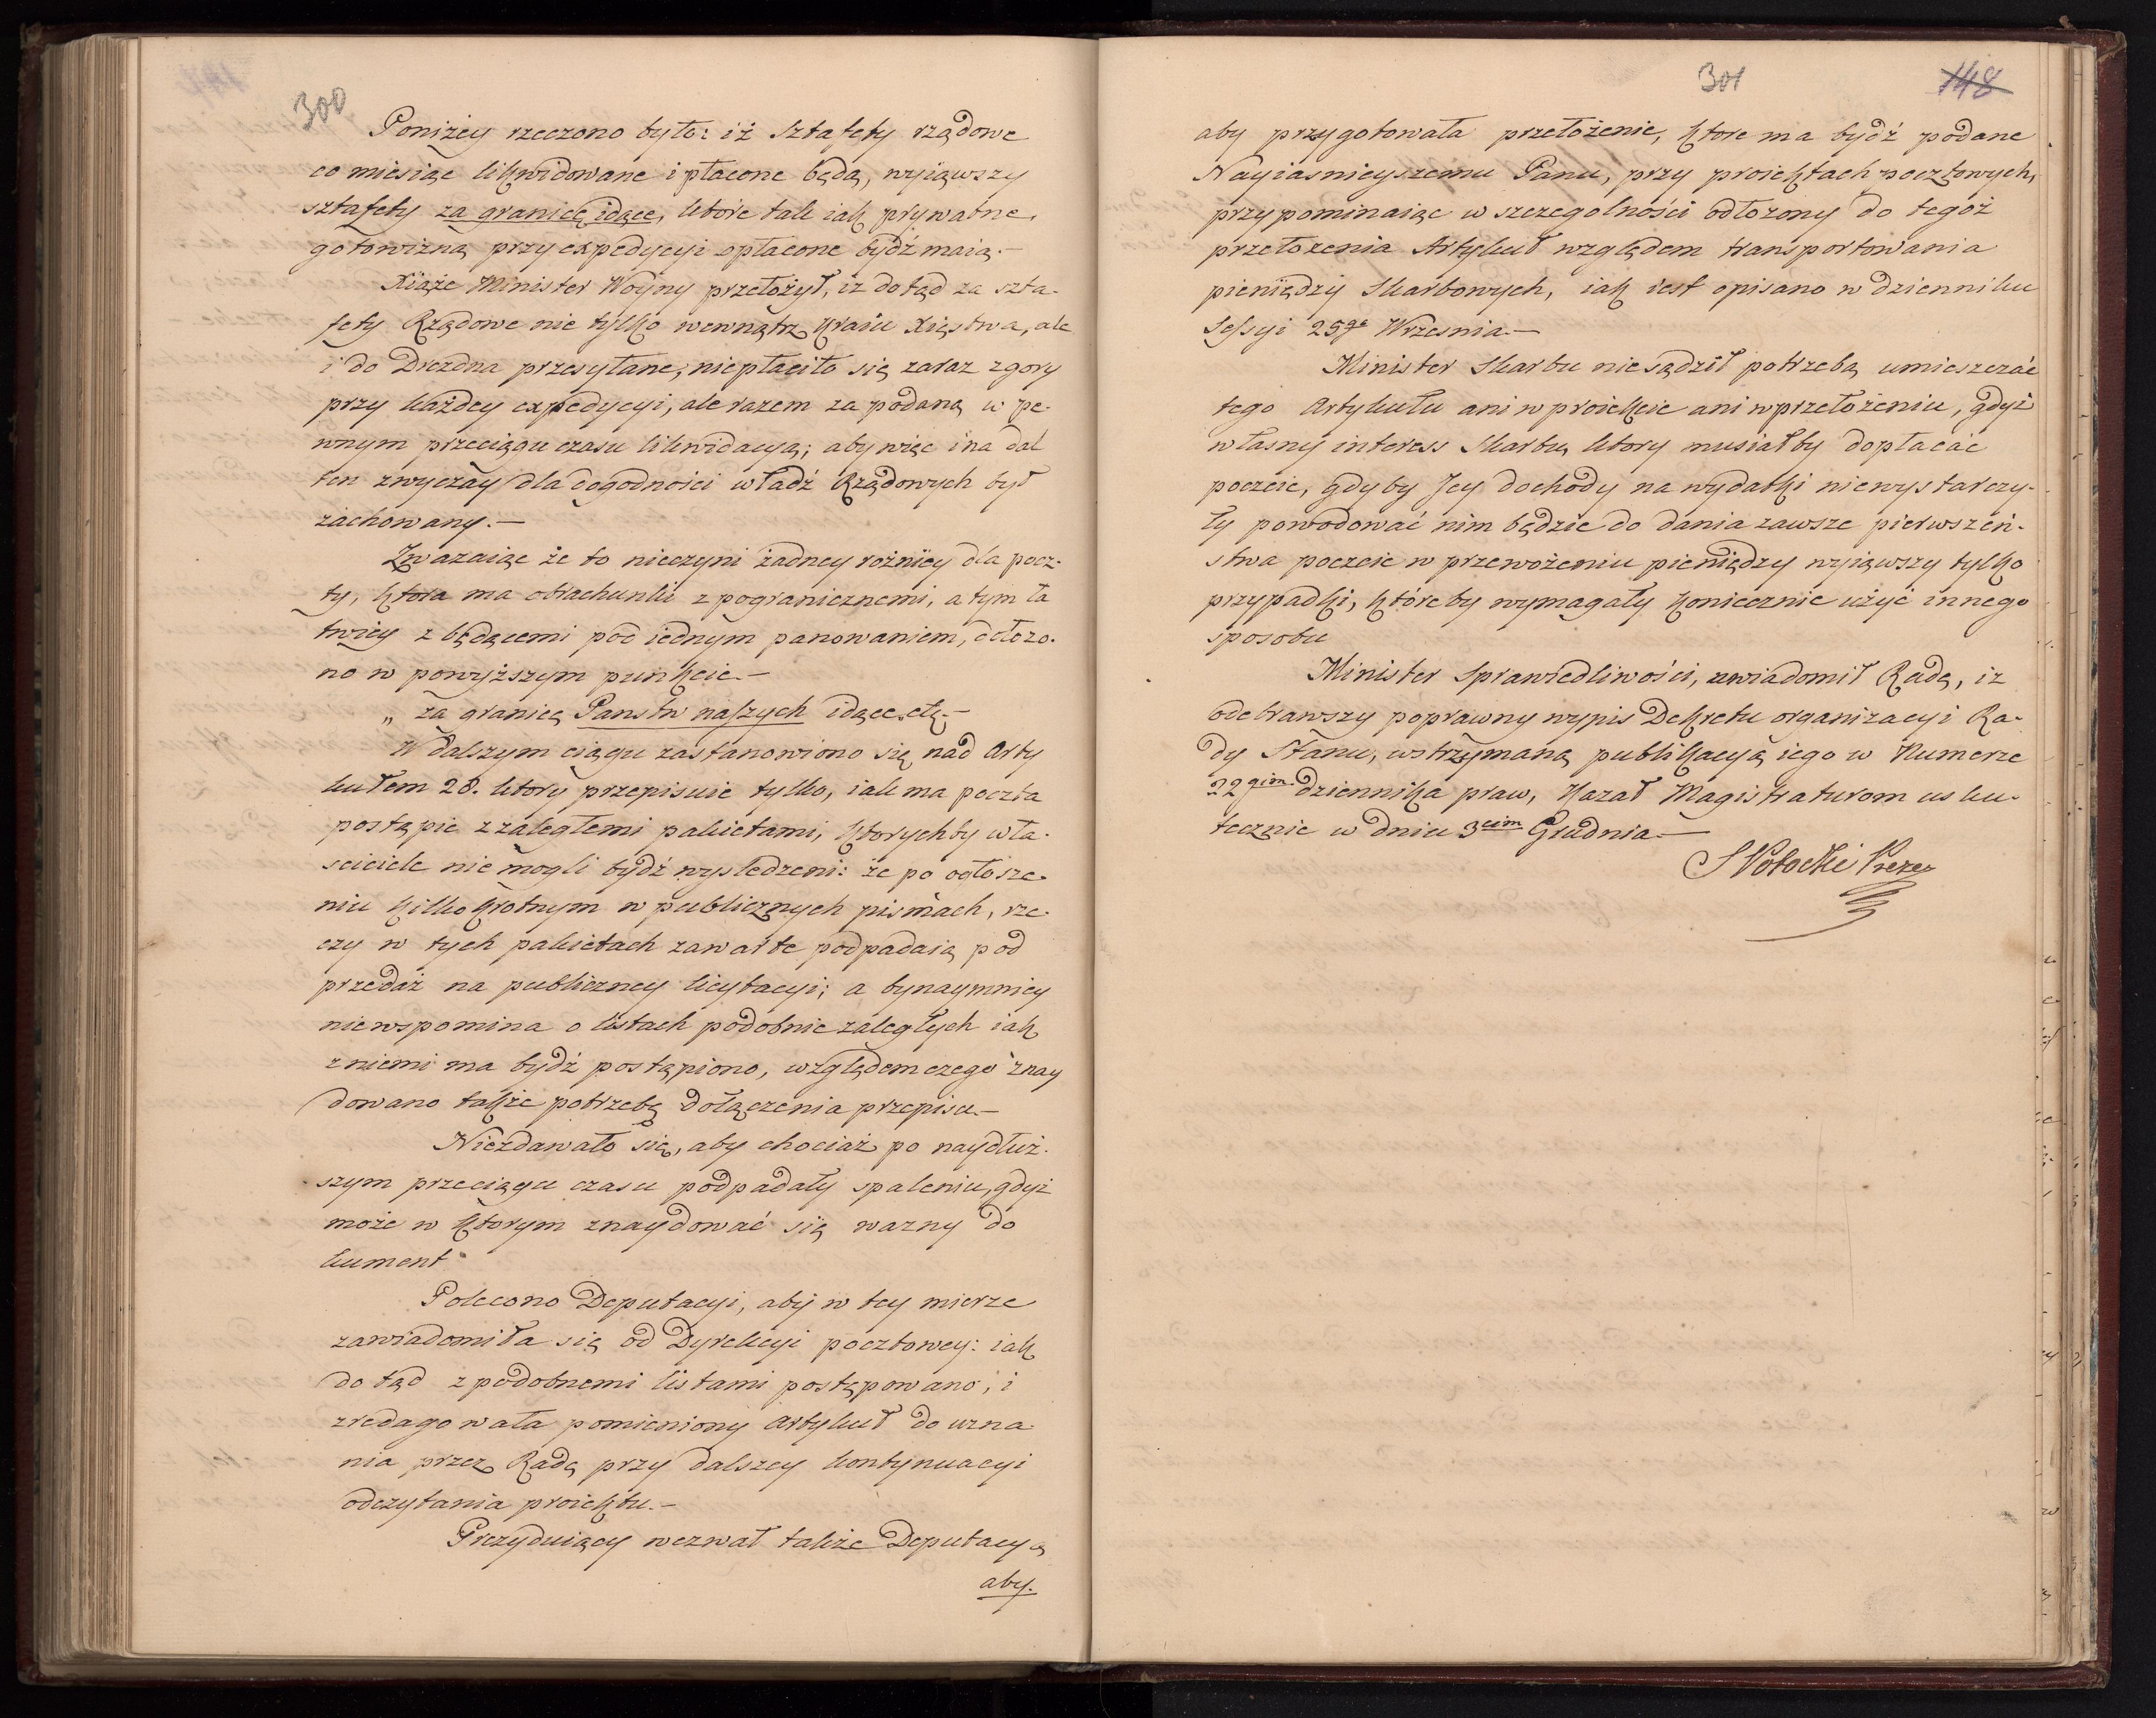 300
Poniżey rzeczono było: iż Sztafety rządowe
co miesiąc likwidowane i płacone będą, wyiąwszy
sztafety za granicę idące, które tak iak prywatne,
gotowizną przy expedycyi opłacone bydź maią.—
Xiąże Minister Woyny przełożył, iz dotąd za szta-
fety Rządowe nie tylko wewnątrz kraiu Xięstwa, ale
i do Drezdna przesyłane, niepłaciło się zaraz z gory
przy każdey expedycyi, ale razem za podaną w pe-
wnym przeciągu czasu likwidacyą; aby więc i na dal
ten zwyczay dla dogodności władź Rządowych był
zachowany.—
Zwazaiąc że to nieczyni żadney rożnicy dla pocz-
ty, ktora ma obrachunki z pogranicznemi, a tym ła
twiey z będącemi pod iednym panowaniem, dołozo-
no w powyższym punkcie.—
„ za granicę Panstw naszych idące, etc.—
W dalszym ciągu zastanowiono się nad Arty
kułem 28. ktory przepisuie tylko, iak ma poczta
postąpic z zaległemi pakietami, ktorychby wła-
sciciele nie mogli bydź wysledzeni: że po ogłosze-
niu kilkokrotnym w publicznych pismach, rze-
czy w tych pakietach zawarte podpadaią pod
przedaż na publiczney licytacyi; a bynaymniey
niewspomina o listach podobnie zaległych iak
z niemi ma bydź postąpiono, względem czego znay
dowano także potrzebę dołączenia przepisu.—
Niezdawało się, aby chociaż po naydłuż-
szym przeciągu czasu podpadały spaleniu, gdyż
może w ktorym znaydować się wazny do
kument
Polecono Deputacyi, aby w tey mierze
zawiadomiła się od Dyrekcyi pocztowey: iak
do tąd z podobnemi listami postępowano, i
zredagowała pomieniony Artykuł do uzna-
nia przez Radę przy dalszey kontynuacyi
odczytania proiektu.—
Prezyduiący wezwał także Deputacyą
aby.
301
148
aby przygotowała przełożenie, ktore ma bydź podane
Nayiasnieyszemu Panu, przy proiektach pocztowych,
przypominaiąc w szczegolności odłozony do tegoż
przełozenia Artykuł względem transportowania
pieniędzy Skarbowych, iak iest opisano w dzienniku
Sessyi 25go Wrzesnia.—
Minister Skarbu niesądził potrzebą umieszczać
tego Artykułu ani w proiekcie ani w przełożeniu, gdyż
własny interess Skarbu, ktory musiałby dopłacać
poczcie, gdyby Jey dochody na wydatki niewystarczy-
ły powodować nim będzie do dania zawsze pierwszeń-
stwa poczcie w przewożeniu pieniędzy wyiąwszy tylko
przypadki, któreby wymagały koniecznie użyć innego
sposobu
Minister Sprawiedliwości, uwiadomił Radę, iz
odebrawszy poprawny wypis Dekretu organizacyi Ra-
dy Stanu, wstrzymaną publikacyą iego w Numerze
22gim dziennika praw, kazał Magistraturom usku-
tecznic w dniu 3cim Grudnia.—
S Potocki Prezes